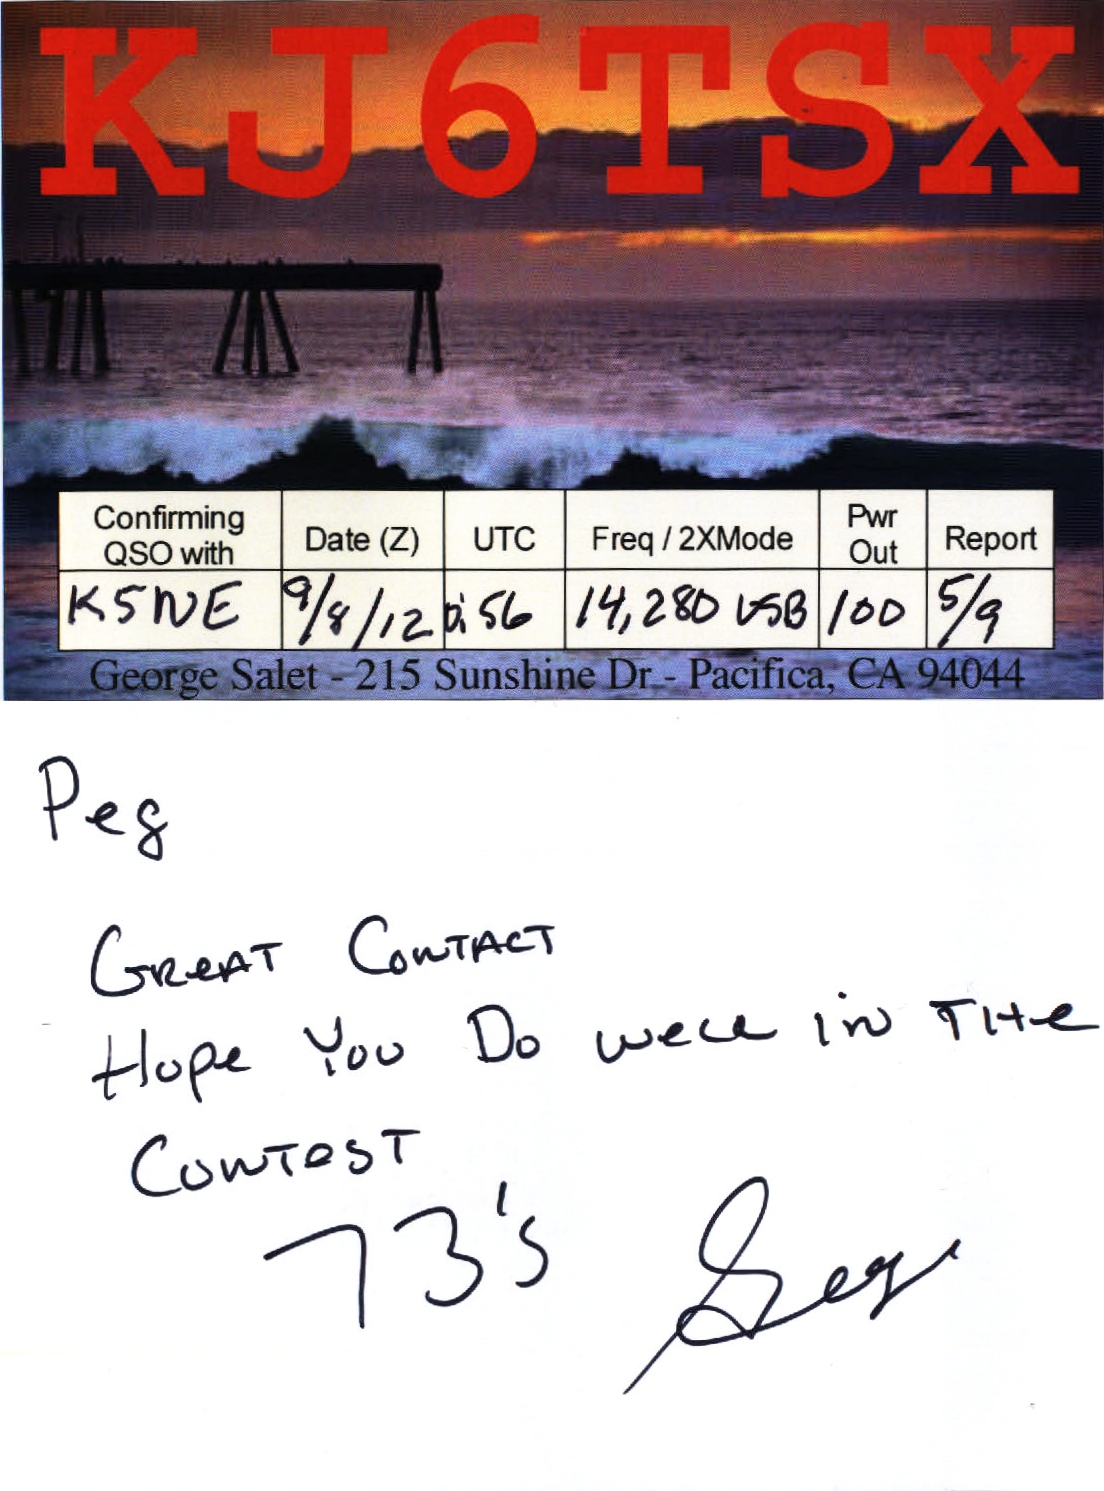 KJ6TSX
Confirming QSO with
Date (Z)
UTC
Freq / 2XMode
Pwr Out
Report
K5NE
9/8/12
0:56
14,280 USB
100
5/9
George Salet - 215 Sunshine Dr - Pacifica, CA 94044
Peg
GReAT CONTACT
Hope You Do well iN THe
CONTeST
73's